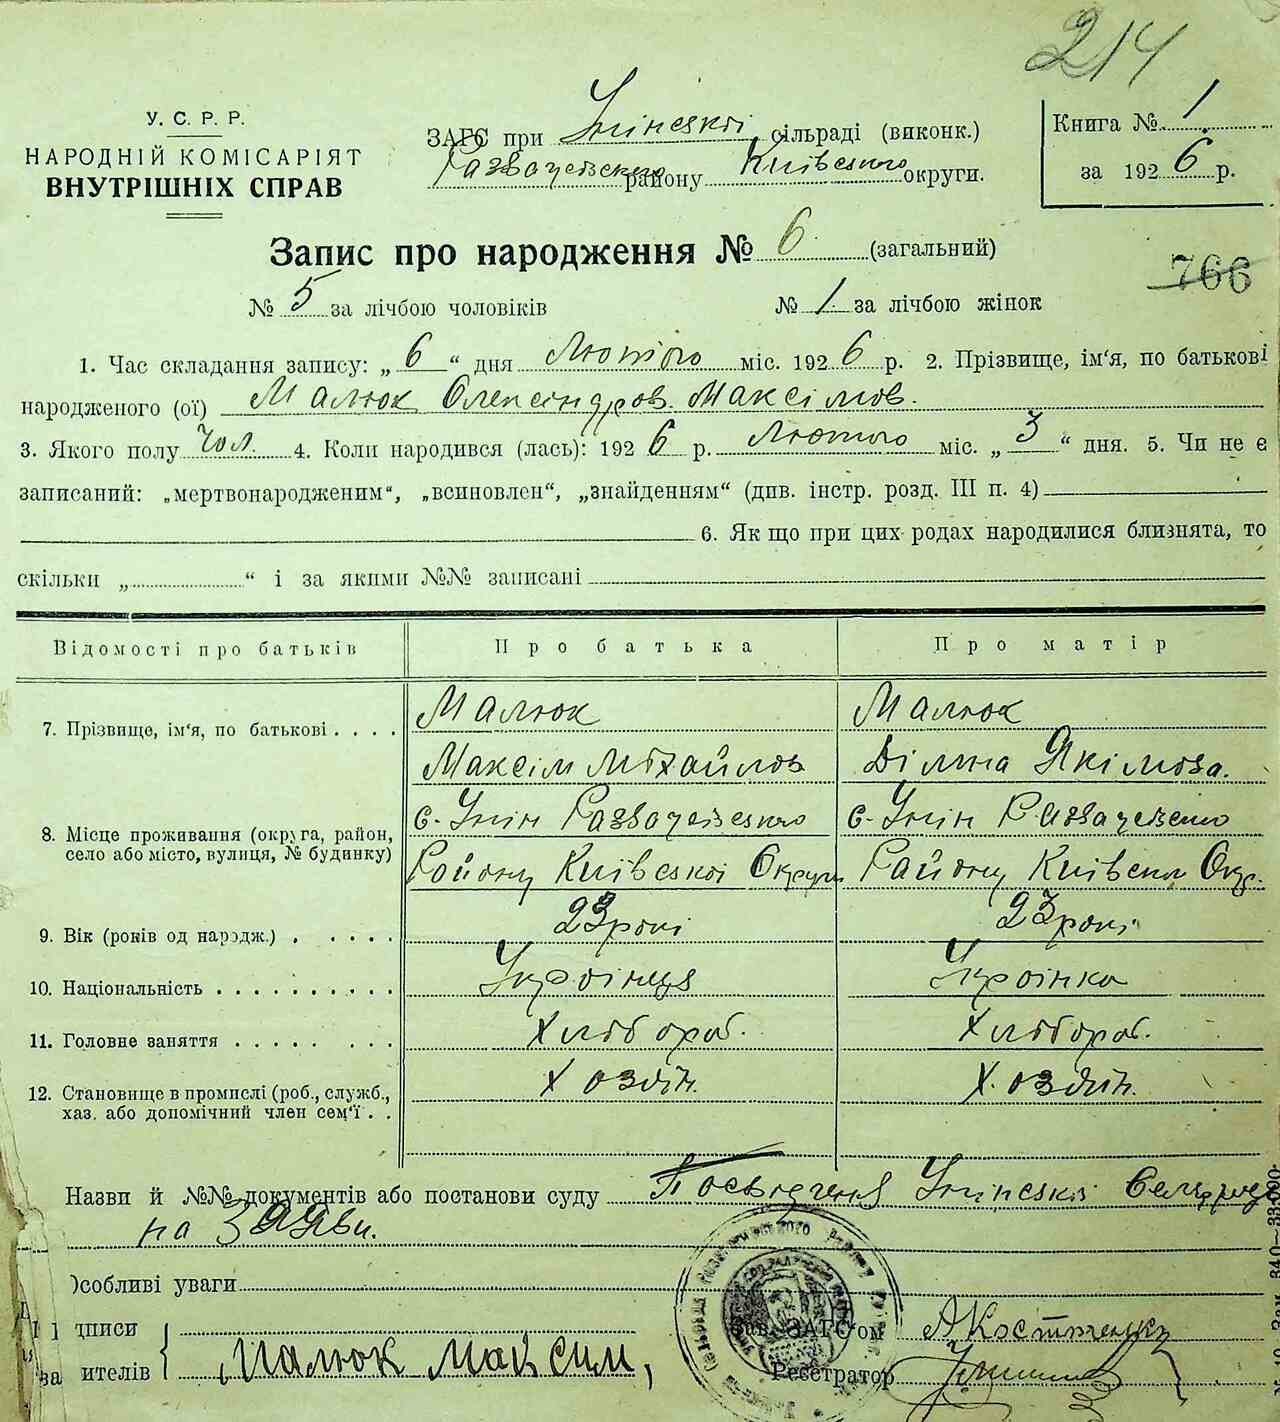 214
У. С. Р. Р.
НАРОДНІЙ КОМІСАРІЯТ
ВНУТРІШНІХ СПРАВ
ЗАГС при Унінскої сільраді (виконк.)
району Київского округи.
Книга № 1
за 1926 р.
Запис про народження № 6 (загальний)
766
№ 5 за лічбою чоловіків № 1 за лічбою жінок
1. Час складання запису: „6“ дня Лютого міс. 1926 р. 2. Прізвище, ім'я, по батькові
народженого (ої) Малюк Олександров. Максімов.
3. Якого полу Чол. 4. Коли народився (лась): 1926 р. Лютого міс. „3“ дня. 5. Чи не є
записаний: „мертвонародженим“, „всиновлен“, „знайденням“ (див. інстр. розд. III п. 4)
6. Як що при цих родах народилися близнята, то
скільки „ “ і за якими №№ записані
Відомості про батьків Про батька Про матір
7. Прізвище, ім'я, по батькові . . . . Малюк Малюк
Максім Міхайлов Якімова.
8. Місце проживання (округа, район, с. Унін с. Унін
село або місто, вулиця, № будинку) Району Київскої Округи Району Київскої Окр.
9. Вік (років од народж.) . . . . . 23 роки 23 роки
10. Національність . . . . . . . . . . Українця Українка
11. Головне заняття . . . . . . . . Хлібороб. Хлібороб.
12. Становище в промислі (роб., служб., Хозяїн. Хозяїн.
хаз. або допомічний член сем'ї . .
Назви й №№ документів або постанови суду Посвідчення Унінскої Сельради
на заяви.
Особливі уваги
дписи
ителів Малюк Максим,
Зав. ЗАГС'ом
Реєстратор